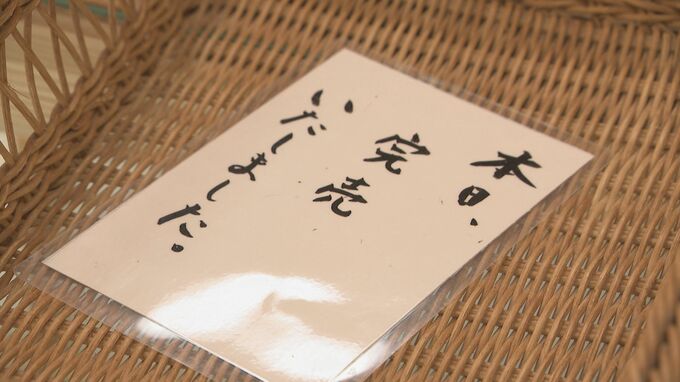 本日、
完売
いたしました。